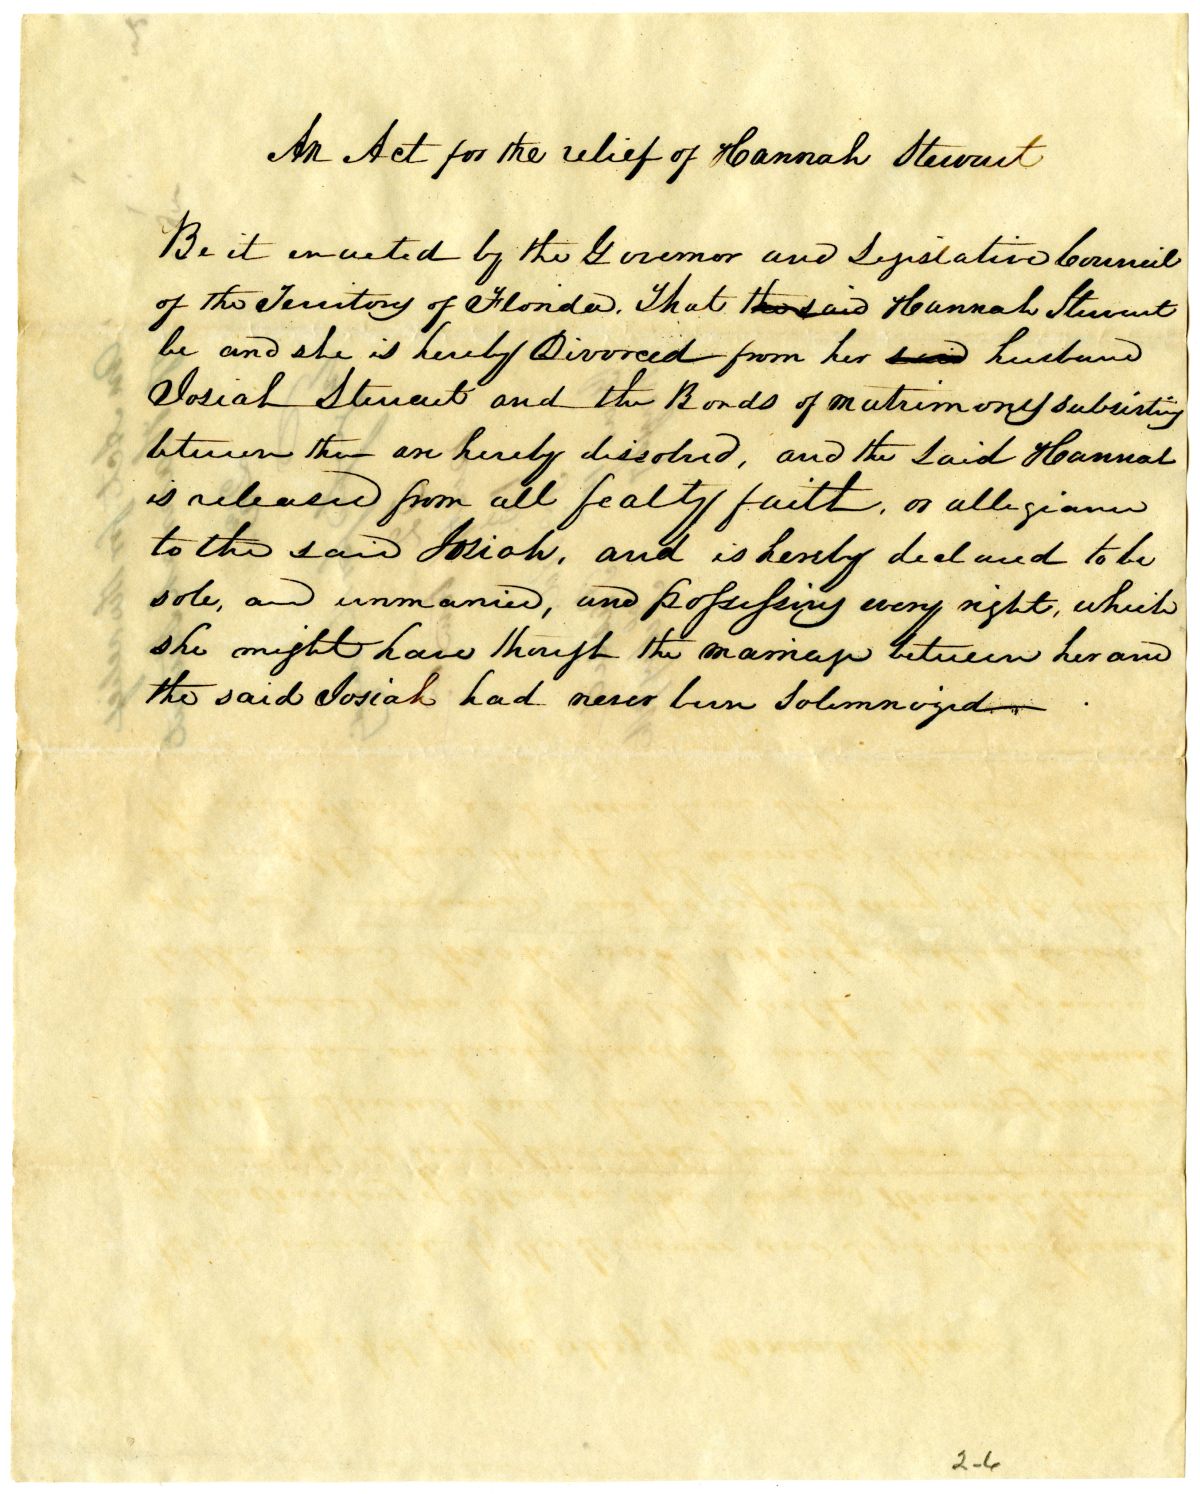 An Act for the relief of Hannah Stewart
Be it enacted by the Governor and Legislative Council
of the Territory of Florida. That the said Hannah Stewart
be and she is hereby Divorced from her said husband
Josiah Stewart and the Bonds of matrimony subsisting
between them are hereby dissolved, and the said Hannah
is released from all fealty faith, or allegiance
to the said Josiah, and is hereby declared to be
sole, and unmarried, and possessing every right, which
she might have though the marriage between her and
the said Josiah had never been solemnized
2-6